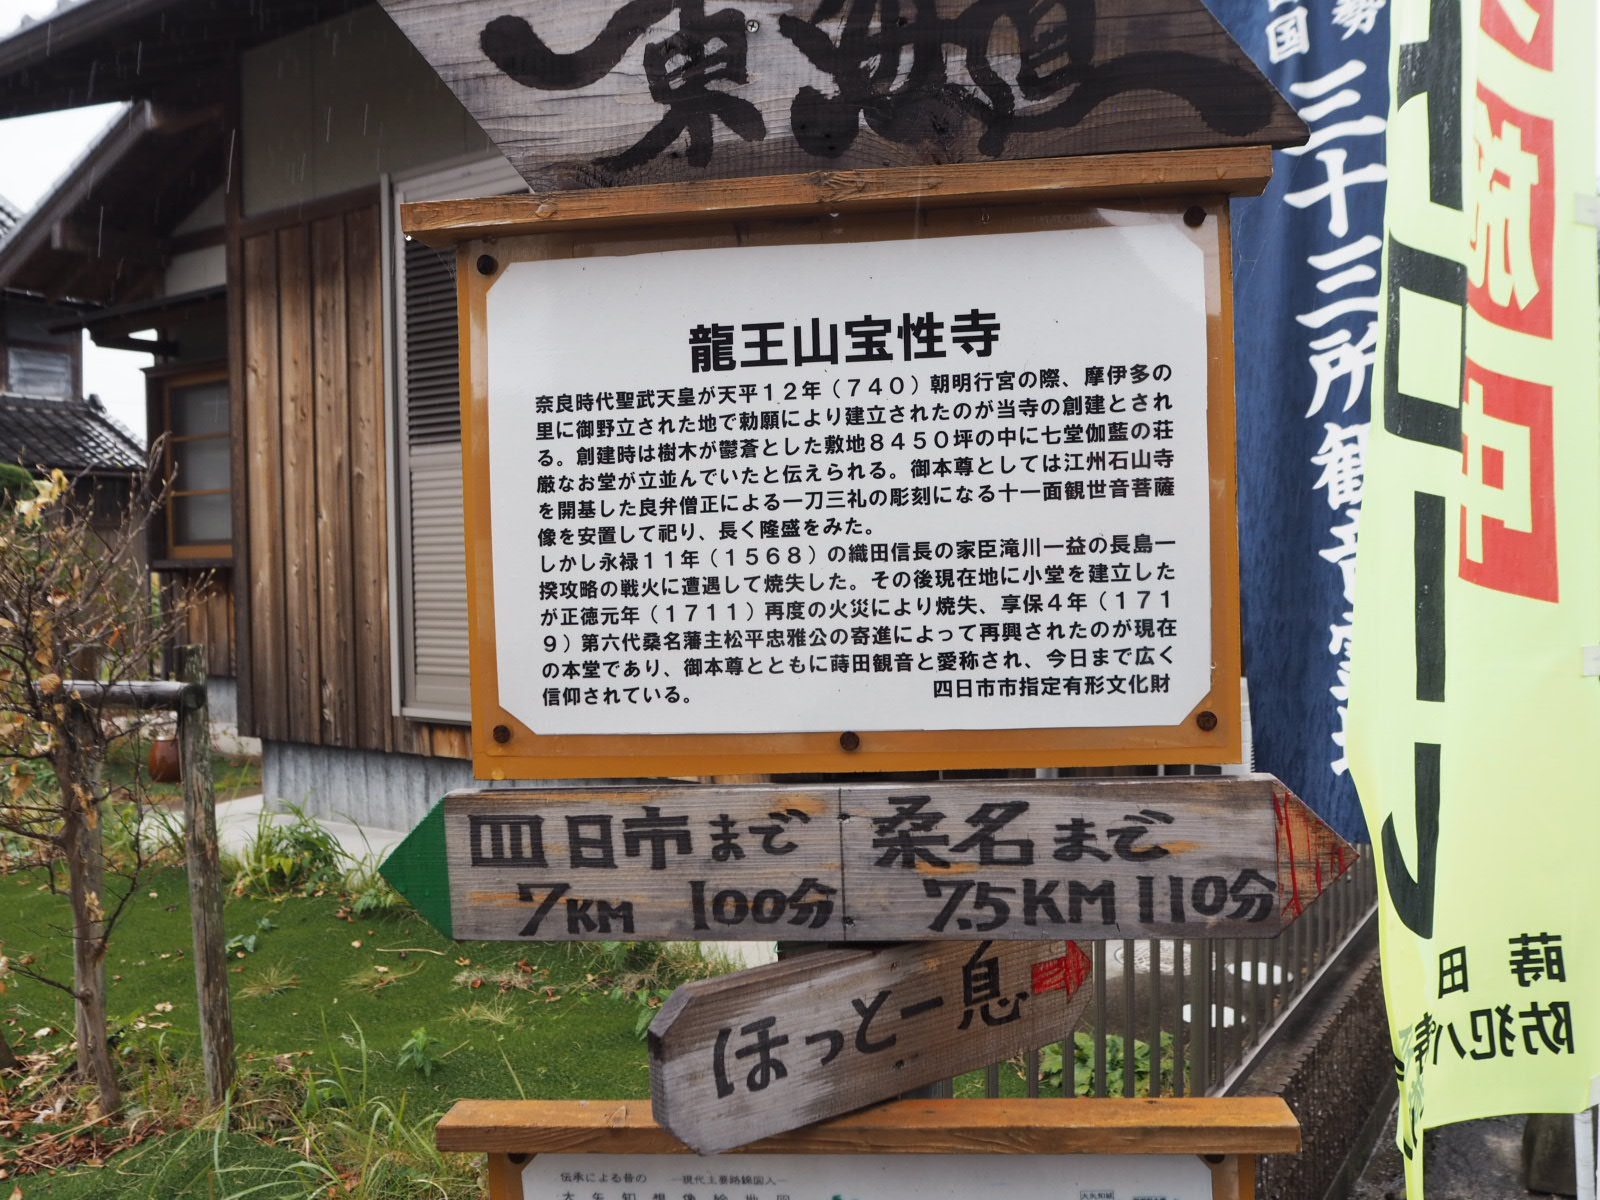 東海道
龍王山宝性寺
奈良時代聖武天皇が天平１２年（７４０）朝明行宮の際、摩伊多の
里に御野立された地で勅願により建立されたのが当寺の創建とされ
る。創建時は樹木が鬱蒼とした敷地８４５０坪の中に七堂伽藍の荘
厳なお堂が立並んでいたと伝えられる。御本尊としては江州石山寺
を開基した良弁僧正による一刀三礼の彫刻になる十一面観世音菩薩
像を安置して祀り、長く隆盛をみた。
しかし永禄１１年（１５６８）の織田信長の家臣滝川一益の長島一
揆攻略の戦火に遭遇して焼失した。その後現在地に小堂を建立した
が正徳元年（１７１１）再度の火災により焼失、享保４年（１７１
９）第六代桑名藩主松平忠雅公の寄進によって再興されたのが現在
の本堂であり、御本尊とともに蒔田観音と愛称され、今日まで広く
信仰されている。
四日市市指定有形文化財
四日市まで
7KM 100分
桑名まで
7.5KM 110分
ほっと一息
伝承による昔の
―現代主要路線図入―
勢
国
三十三所観音霊場
パトロール中
蒔田
防犯パ